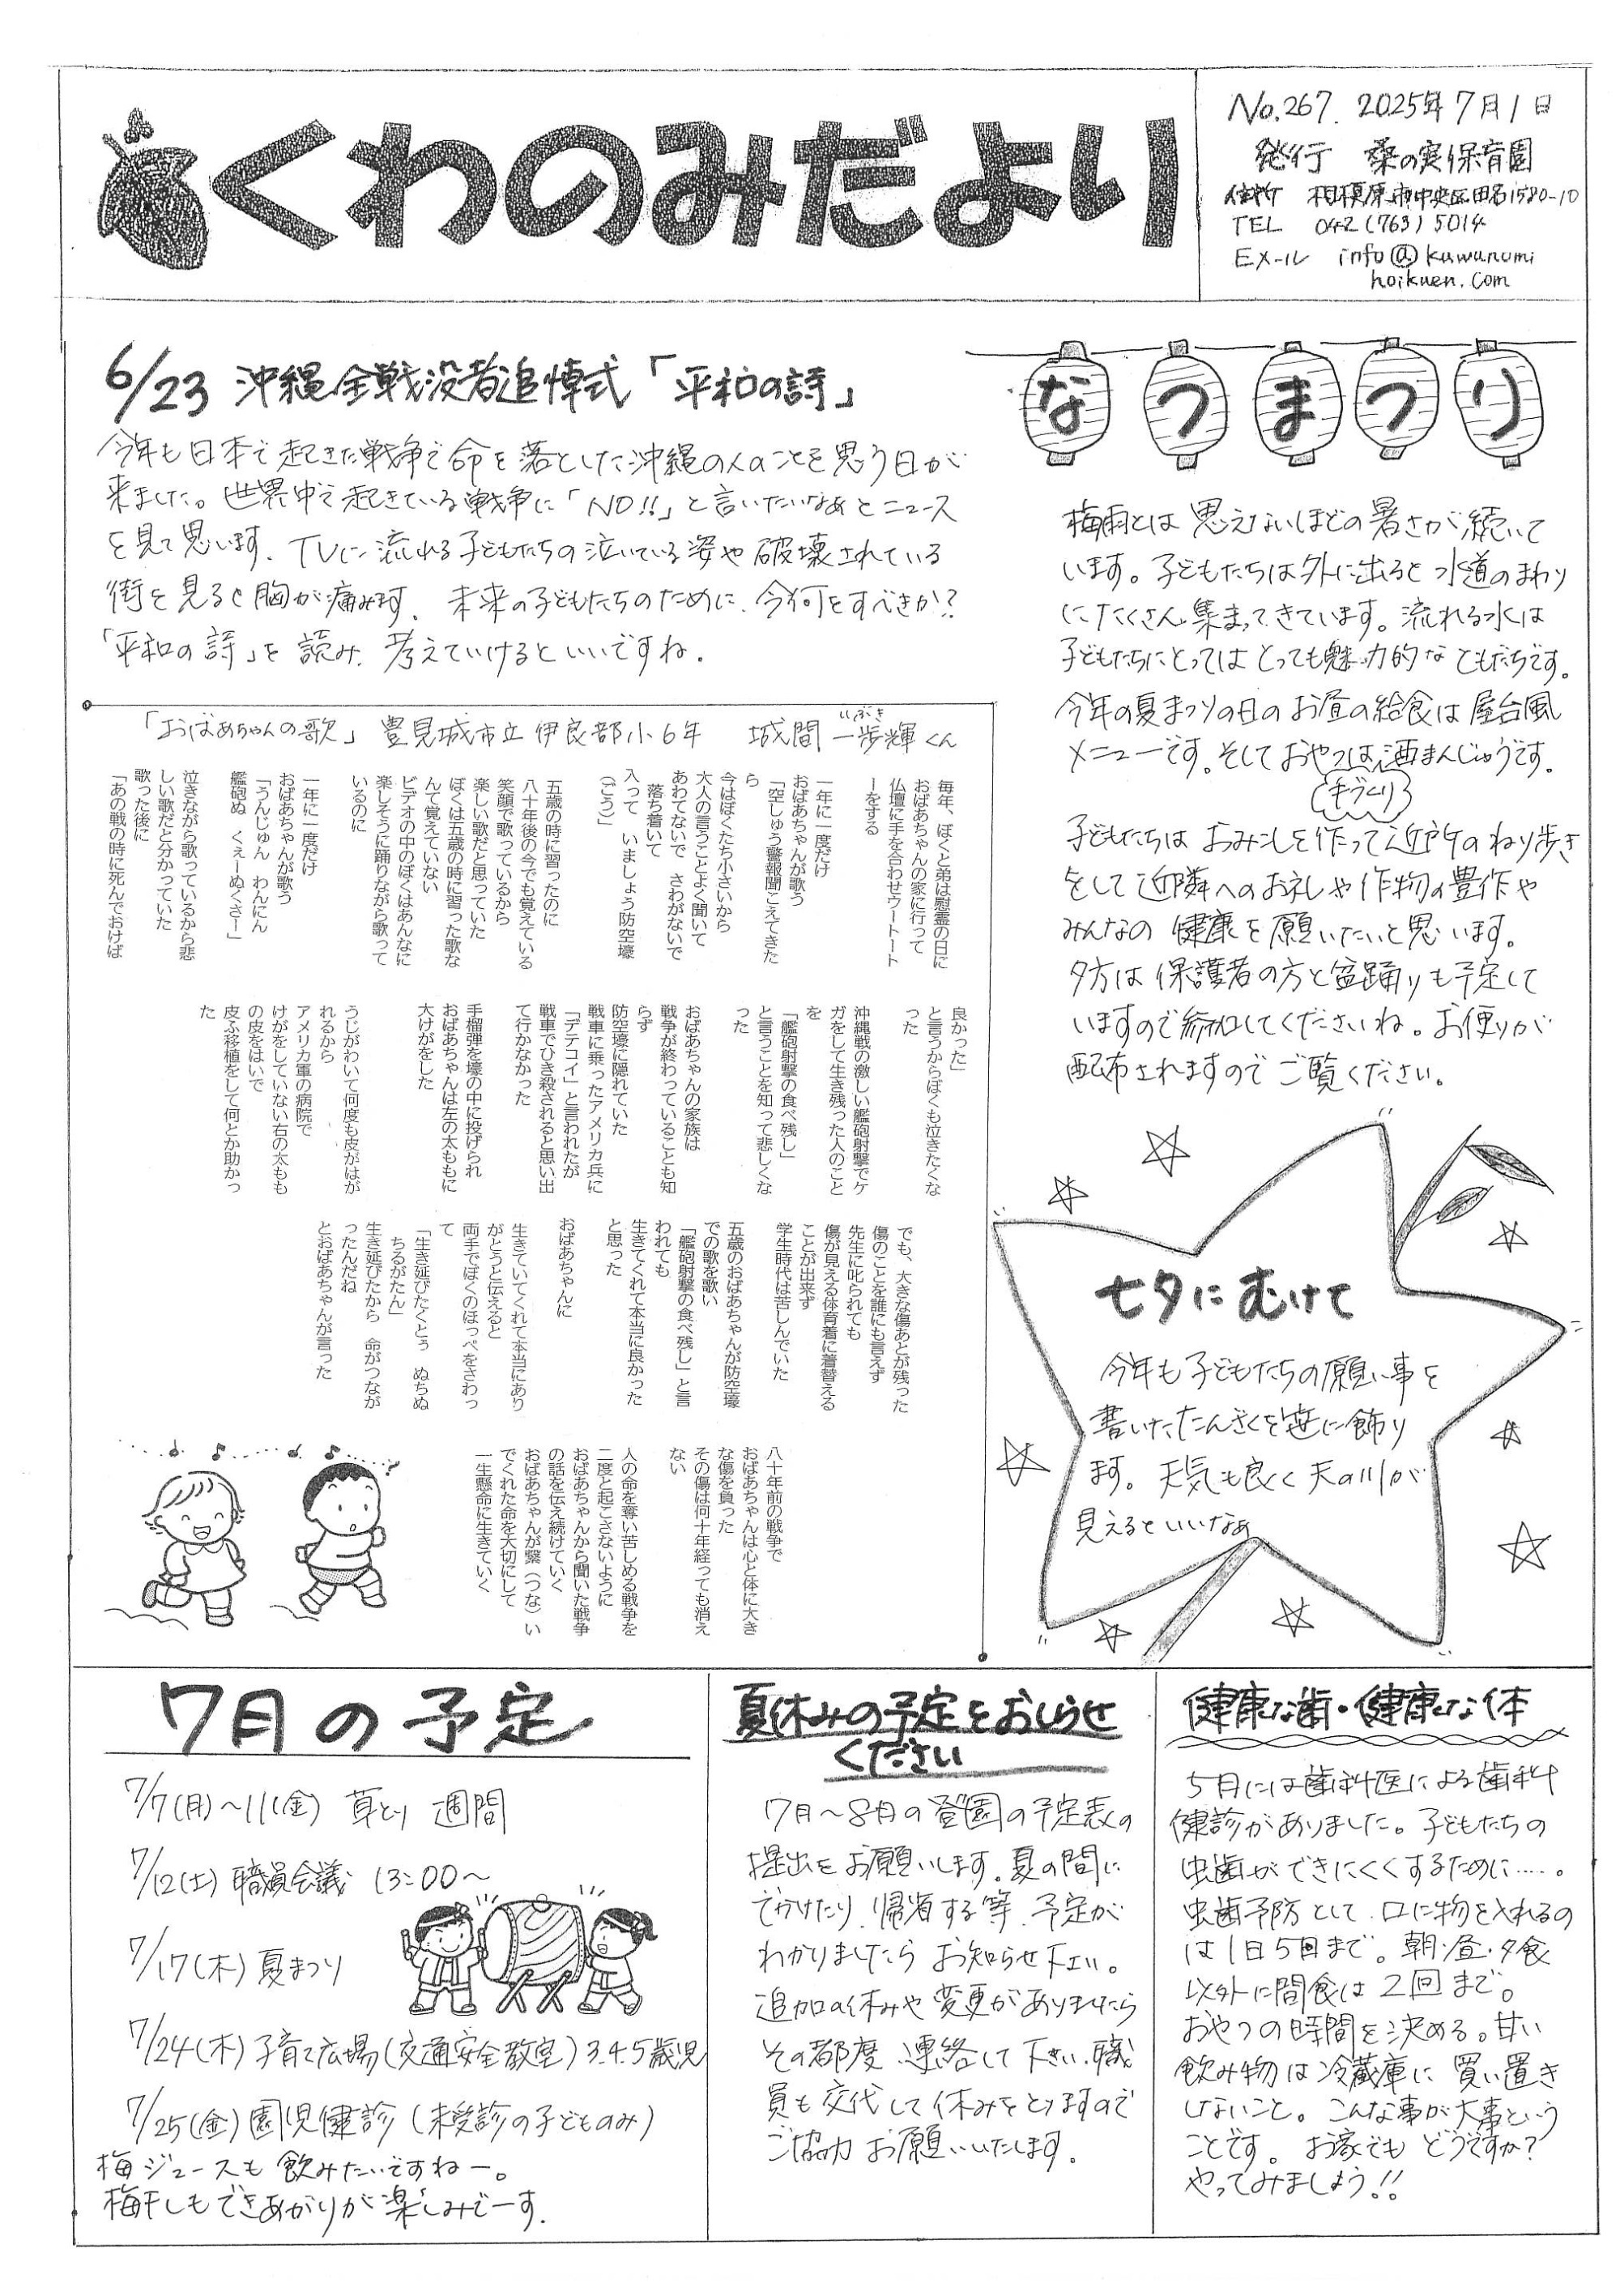 くわのみだより
No.267. 2025年7月1日
発行 桑の実保育園
住所 相模原市中央区田名1580-10
TEL 042(763)5014
Eメール info@kuwanomi
hoikuen.com
6/23 沖縄全戦没者追悼式「平和の詩」
今年も日本で起きた戦争で命を落とした沖縄の人のことを思う日が
来ました。世界中で起きている戦争に「NO!!」と言いたいなぁとニュース
を見て思います。TVに流れる子どもたちの泣いている姿や破壊されている
街を見ると胸が痛みます。未来の子どもたちのために、今何をすべきか?
「平和の詩」を読み、考えていけるといいですね。
「おばあちゃんの歌」 豊見城市立 伊良部小6年 城間 一歩輝くん
いぶき
毎年、ぼくと弟は慰霊の日に
おばあちゃんの家に行って
仏壇に手を合わせウートート
ーをする
一年に一度だけ
おばあちゃんが歌う
「空しゅう警報聞こえてきた
ら
今はぼくたち小さいから
大人の言うことよく聞いて
あわてないで さわがないで
落ち着いて
入って いましょう防空壕
(ごう)」
五歳の時に習ったのに
八十年後の今でも覚えている
笑顔で歌っているから
楽しい歌だと思っていた
ぼくは五歳の時に習った歌な
んて覚えていない
ビデオの中のぼくはあんなに
楽しそうに踊りながら歌って
いるのに
一年に一度だけ
おばあちゃんが歌う
「うんじゅん わんにん
艦砲ぬ くぇーぬくさー」
泣きながら歌っているから悲
しい歌だと分かっていた
歌った後に
「あの戦の時に死んでおけば
良かった」
と言うからぼくも泣きたくな
った
沖縄戦の激しい艦砲射撃でケ
ガをして生き残った人のこと
を
「艦砲射撃の食べ残し」
と言うことを知って悲しくな
った
おばあちゃんの家族は
戦争が終わっていることも知
らず
防空壕に隠れていた
戦車に乗ったアメリカ兵に
「デテコイ」と言われたが
戦車でひき殺されると思い出
て行かなかった
手榴弾を壕の中に投げられ
おばあちゃんは左の太ももに
大けがをした
うじがわいて何度も皮がはが
れるから
アメリカ軍の病院で
けがをしていない右の太もも
の皮をはいで
皮ふ移植をして何とか助かっ
た
でも、大きな傷あとが残った
傷のことを誰にも言えず
先生に叱られても
傷が見える体育着に着替える
ことが出来ず
学生時代は苦しんでいた
五歳のおばあちゃんが防空壕
での歌を歌い
「艦砲射撃の食べ残し」と言
われても
生きてくれて本当に良かった
と思った
おばあちゃんに
生きていてくれて本当にあり
がとうと伝えると
両手でぼくのほっぺをさわっ
て
「生き延びたくとぅ ぬちぬ
ちるがたん」
生き延びたから 命がつなが
ったんだね
とおばあちゃんが言った
八十年前の戦争で
おばあちゃんは心と体に大き
な傷を負った
その傷は何十年経っても消え
ない
人の命を奪い苦しめる戦争を
二度と起こさないように
おばあちゃんから聞いた戦争
の話を伝え続けていく
おばあちゃんが繋(つな)い
でくれた命を大切にして
一生懸命に生きていく
なつまつり
梅雨とは思えないほどの暑さが続いて
います。子どもたちは外に出ると水道のまわり
にたくさん集まってきています。流れる水は
子どもたちにとってはとっても魅力的なともだちです。
今年の夏まつりの日のお昼の給食は屋台風
メニューです。そしておやつは酒まんじゅうです。
手づくり
子どもたちはおみこしを作って近所のねり歩き
をして近隣へのお礼や作物の豊作や
みんなの健康を願いたいと思います。
夕方は保護者の方と盆踊りも予定して
いますので参加してくださいね。お便りが
配布されますのでご覧ください。
七夕にむけて
今年も子どもたちの願い事を
書いたたんざくを笹に飾り
ます。天気も良く天の川が
見えるといいなぁ
7月の予定
7/7(月)~11(金) 草とり週間
7/12(土) 職員会議 13:00~
7/17(木) 夏まつり
7/24(木) 子育て広場(交通安全教室)3.4.5歳児
7/25(金) 園児健診(未受診の子どものみ)
梅ジュースも飲みたいですねー。
梅干しもできあがりが楽しみでーす。
夏休みの予定をおしらせ
ください
7月~8月の登園の予定表の
提出をお願いします。夏の間に
でかけたり、帰省する等、予定が
わかりましたらお知らせ下さい。
追加の休みや変更がありましたら
その都度、連絡して下さい。職
員も交代して休みをとりますので
ご協力お願いいたします。
健康な歯・健康な体
5月には歯科医による歯科
健診がありました。子どもたちの
虫歯ができにくくするために……。
虫歯予防として、口に物を入れるの
は1日5回まで。朝・昼・夕食
以外に間食は2回まで。
おやつの時間を決める。甘い
飲み物は冷蔵庫に買い置き
しないこと。こんな事が大事という
ことです。お家でもどうですか?
やってみましょう!!